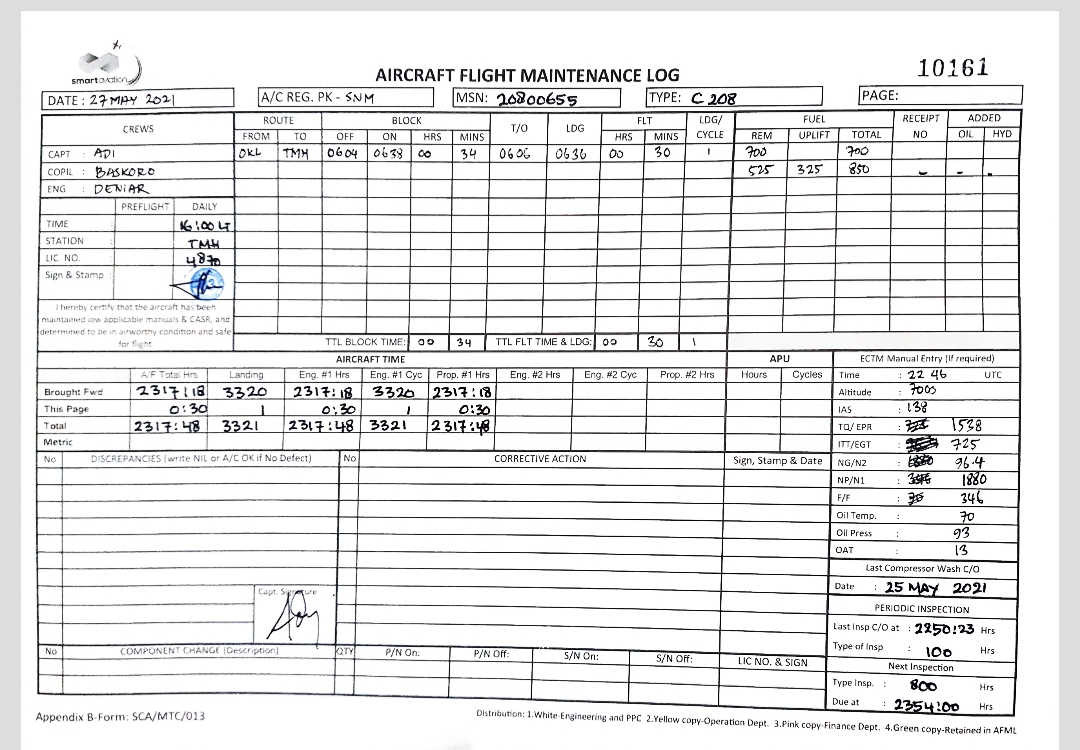 smartaviation
AIRCRAFT FLIGHT MAINTENANCE LOG
10161
DATE : 27 MAY 2021
A/C REG. PK - SNM
MSN: 20800655
TYPE: C 208
PAGE:
CREWS ROUTE BLOCK T/O LDG FLT LDG/ CYCLE FUEL RECEIPT NO ADDED
FROM TO OFF ON HRS MINS HRS MINS REM UPLIFT TOTAL OIL HYD
CAPT : ADI OKL TMH 0604 0638 00 34 0606 0636 00 30 1 700 700
COPIL : BASKORO 525 325 850 - - -
ENG : DENIAR
PREFLIGHT DAILY
TIME 16:00 LT
STATION TMH
LIC. NO. 4870
Sign & Stamp :
I hereby certify that the aircraft has been
maintained iaw applicable manuals & CASR, and
determined to be in airworthy condition and safe
for flight.
TTL BLOCK TIME: 00 34 TTL FLT TIME & LDG: 00 30 1
AIRCRAFT TIME APU ECTM Manual Entry (If required)
A/F Total Hrs Landing Eng. #1 Hrs Eng. #1 Cyc Prop. #1 Hrs Eng. #2 Hrs Eng. #2 Cyc Prop. #2 Hrs Hours Cycles
Brought Fwd 2317:18 3320 2317:18 3320 2317:18
This Page 0:30 1 0:30 1 0:30
Total 2317:48 3321 2317:48 3321 2317:48
Metric
Time : 22 46 UTC
Altitude : 7005
IAS : 138
TQ/ EPR : 1538
ITT/EGT : 725
NG/N2 : 96.4
NP/N1 : 1880
F/F : 346
Oil Temp. : 70
Oil Press : 93
OAT : 13
Last Compressor Wash C/O
Date : 25 MAY 2021
PERIODIC INSPECTION
Last Insp C/O at : 2250:23 Hrs
Type of Insp : 100 Hrs
Next Inspection
Type Insp. : 800 Hrs
Due at : 2354:00 Hrs
No DISCREPANCIES (write NIL or A/C OK if No Defect) No CORRECTIVE ACTION Sign, Stamp & Date
Capt. Signature
No COMPONENT CHANGE (Description) QTY P/N On: P/N Off: S/N On: S/N Off: LIC NO. & SIGN
Appendix B-Form: SCA/MTC/013
Distribution: 1.White-Engineering and PPC 2.Yellow copy-Operation Dept. 3.Pink copy-Finance Dept. 4.Green copy-Retained in AFML